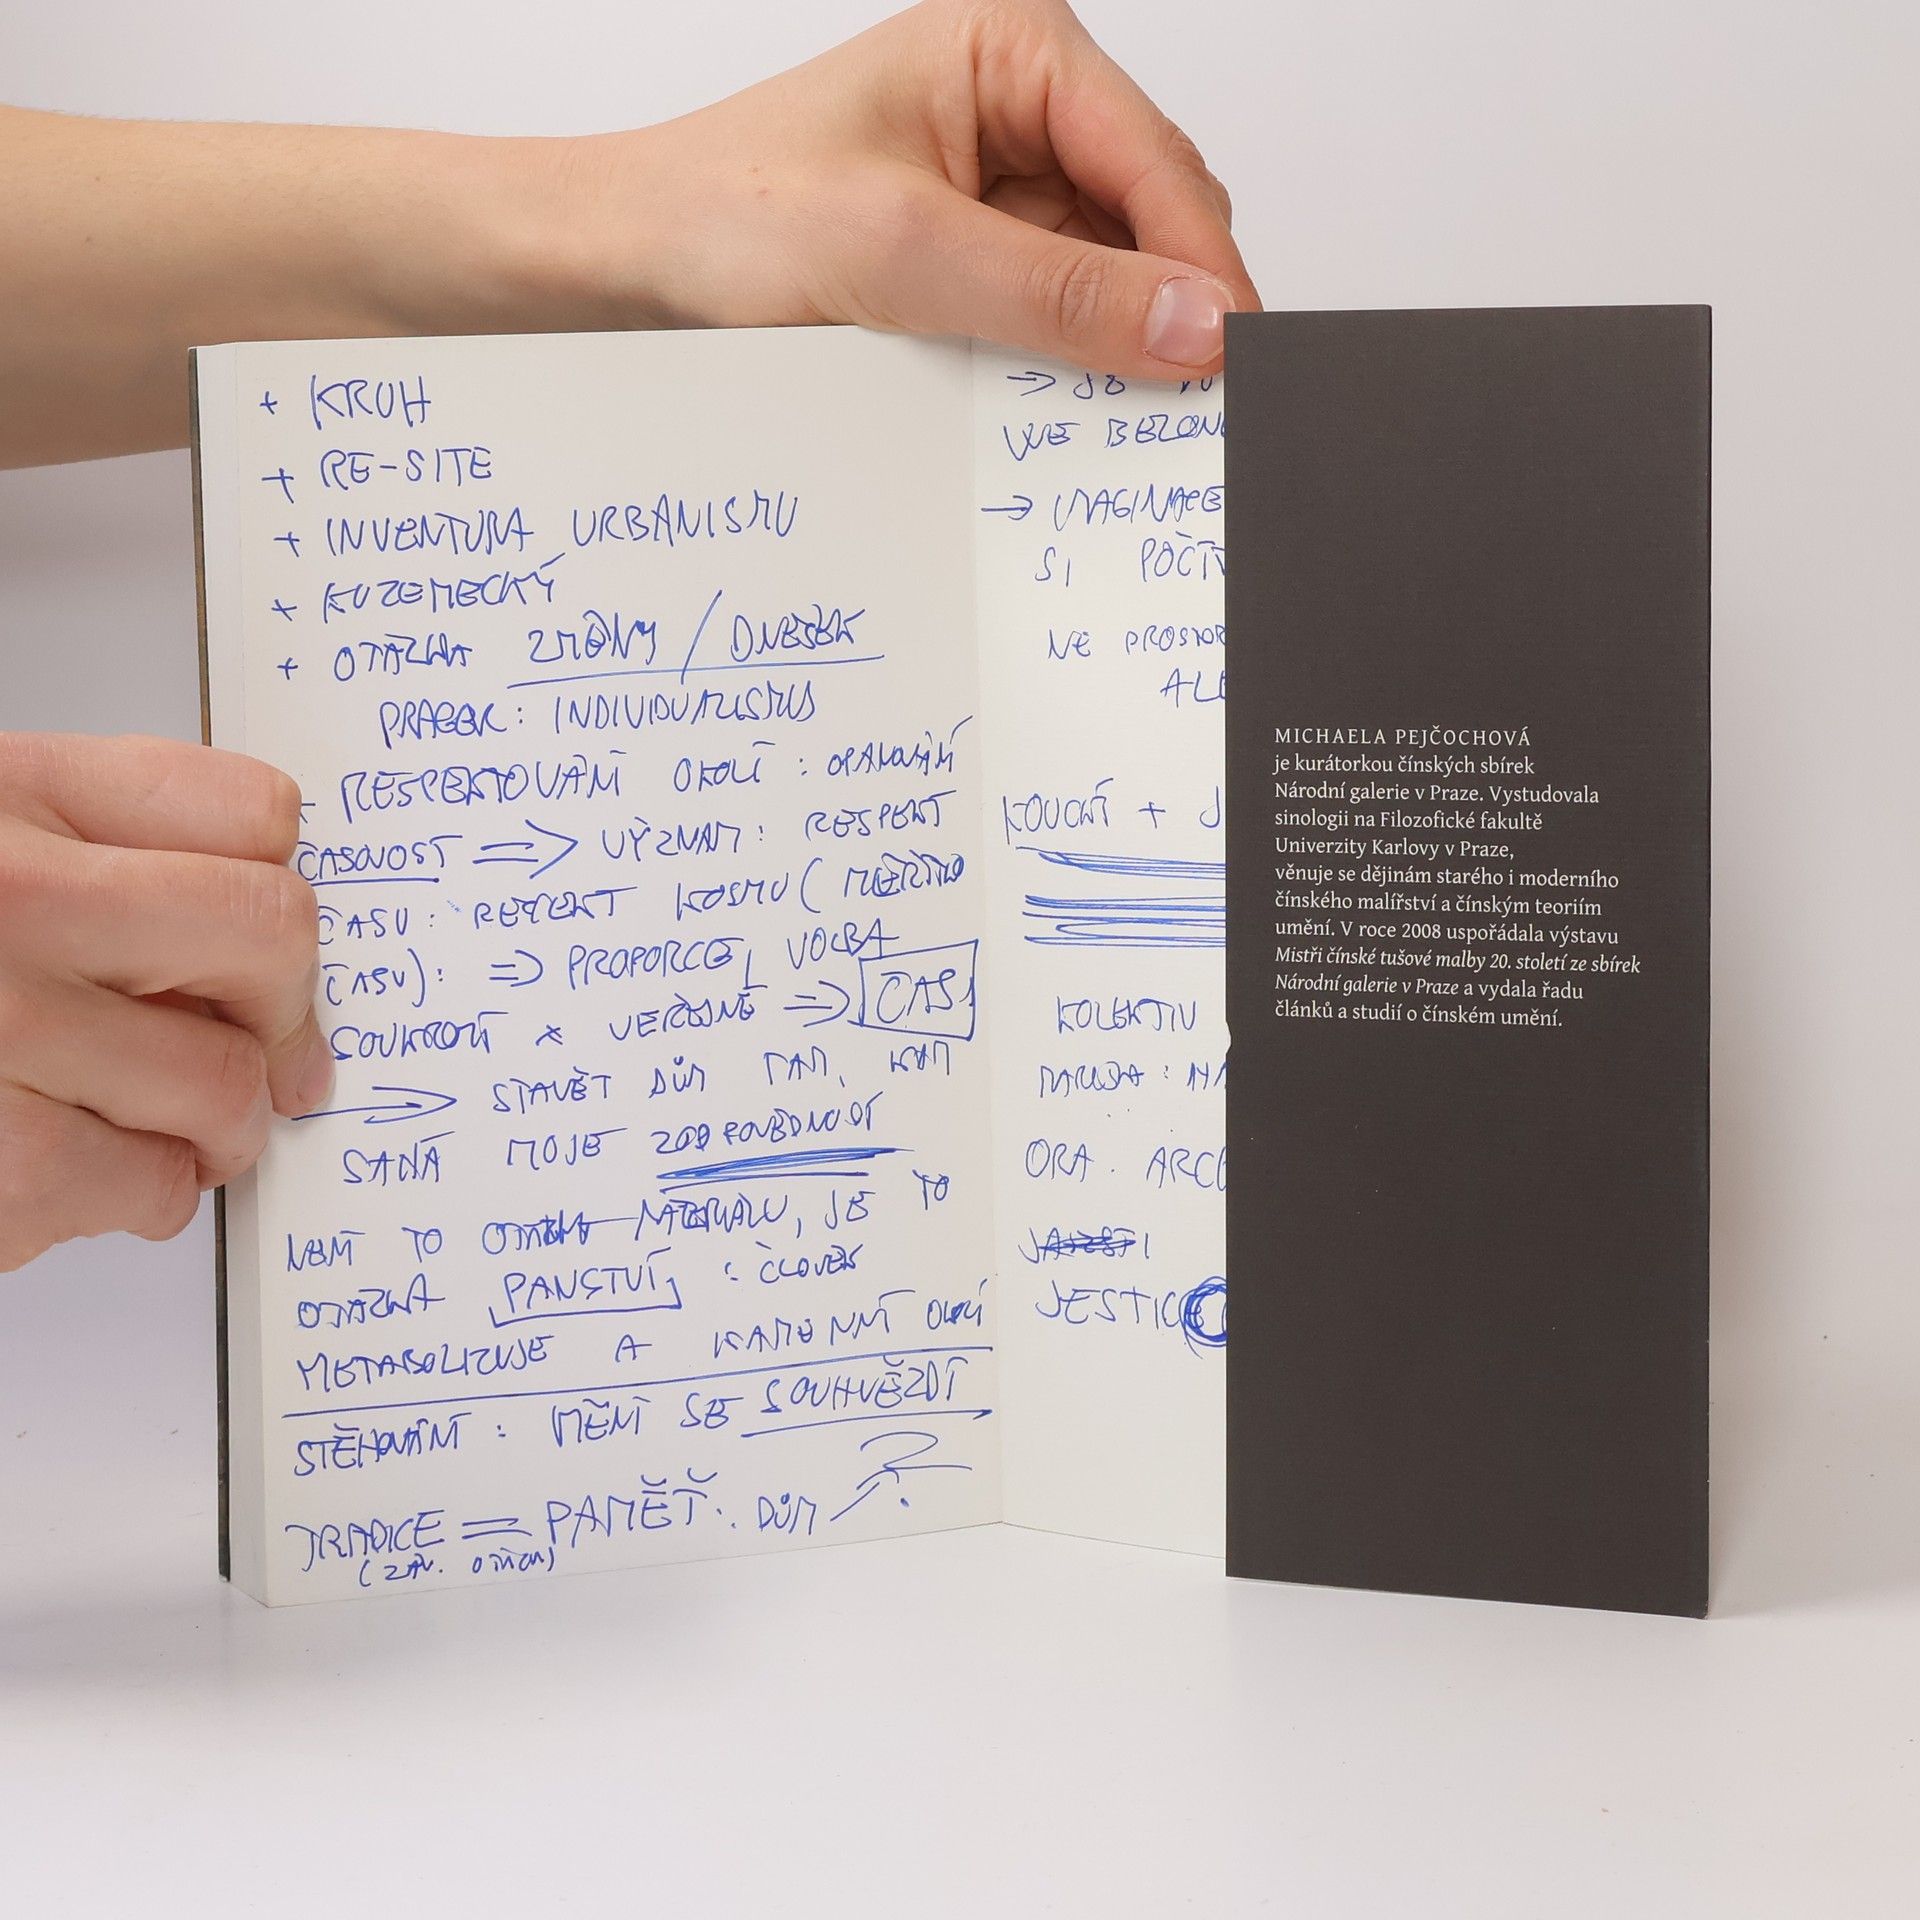 + KRUH
+ RE-SITE
+ INVENTURA URBANISMU
+ KUZEMECKÝ
+ OTÁZKA ZMĚNY / DNEŠEK
PRAGER: INDIVIDUALISMUS
+ RESPEKTOVÁNÍ OKOLÍ : OPANOVÁNÍ
ČASOVOST => VÝZNAM: RESPEKT
ČASU: RESPEKT KOSMU (
ČASU): => PROPORCE, VOLBA
SOUKROMÍ × VEŘEJNÉ => ČAS
STAVĚT DŮM TAM, KAM
SAHÁ MOJE ZODPOVĚDNOST
NENÍ TO OTÁZKA MATERIÁLU, JE TO
OTÁZKA PANSTVÍ : ČLOVĚK
METABOLIZUJE A OKOLÍ
STĚHOVÁNÍ : MĚNÍ SE SOUHVĚZDÍ
TRADICE = PAMĚŤ. DŮM ?
→ JE
WE BELONG
→ IMAGINACE
SI
NE PROSTOR
ALE
KOUCKÝ + J
KOLEKTIV
ORA. ARC
JESTICO
MICHAELA PEJČOCHOVÁ
je kurátorkou čínských sbírek
Národní galerie v Praze. Vystudovala
sinologii na Filozofické fakultě
Univerzity Karlovy v Praze,
věnuje se dějinám starého i moderního
čínského malířství a čínským teoriím
umění. V roce 2008 uspořádala výstavu
Mistři čínské tušové malby 20. století ze sbírek
Národní galerie v Praze a vydala řadu
článků a studií o čínském umění.